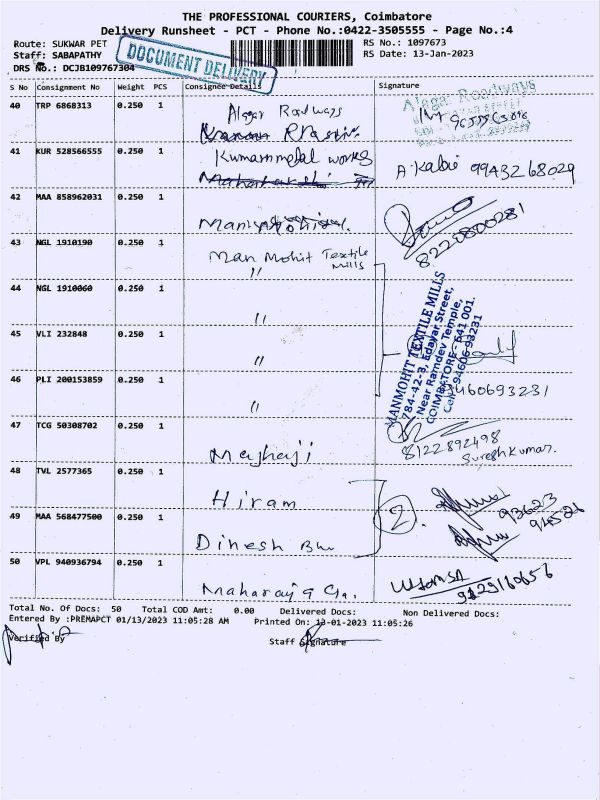 THE PROFESSIONAL COURIERS, Coimbatore
Delivery Runsheet - PCT - Phone No.:0422-3505555 - Page No.:4
Route: SUKWAR PET
RS No.: 1097673
Staff: SABAPATHY
RS Date: 13-Jan-2023
DRS No.: DCJB109767304
DOCUMENT DELIVERY
S No Consignment No Weight PCS Consignee Details Signature
40 TRP 6868313 0.250 1 Alagar Roadways
Alagar Roadways
41 KUR 528566555 0.250 1 Kumaran metal works
A. Kabir 9943268029
42 MAA 858962031 0.250 1
8220800281
43 NGL 1910190 0.250 1 Man Mohit Textile Mills
44 NGL 1910060 0.250 1 "
45 VLI 232848 0.250 1 "
46 PLI 200153859 0.250 1 "
MANMOHIT TEXTILE MILLS
784-42-3, Edayar Street,
Near Ramdev Temple,
COIMBATORE - 641 001.
Cell: 94606-93231
9460693231
47 TCG 50308702 0.250 1 Majhaji
8122892498
Suresh Kumar.
48 TVL 2577365 0.250 1 Hiram
2.
93623
94526
49 MAA 568477500 0.250 1 Dinesh
50 VPL 940936794 0.250 1 Maharaja
9129160656
Total No. Of Docs: 50 Total COD Amt: 0.00 Delivered Docs: Non Delivered Docs:
Entered By :PREMAPCT 01/13/2023 11:05:28 AM Printed On: 13-01-2023 11:05:26
Verified By Staff Signature